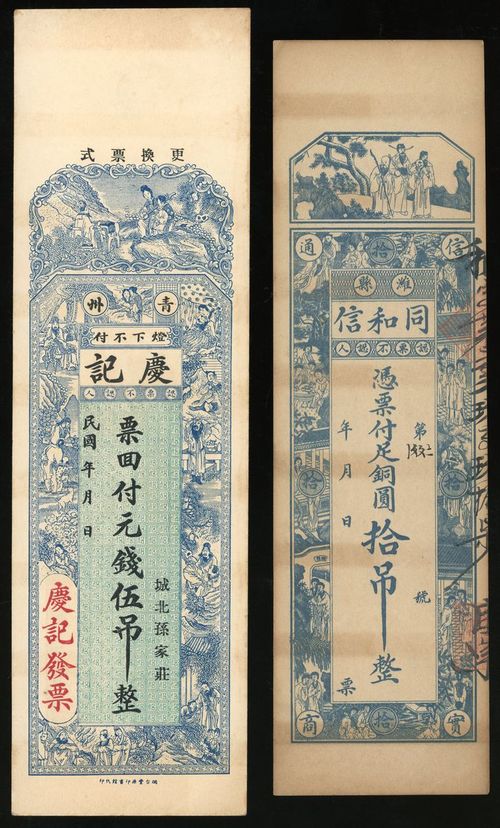 更換票式
青州
燈下不付
慶記
認票不認人
城北孫家莊
票回付元錢伍吊整
民國 年 月 日
慶記發票
信拾通
濰縣
同和信
認票不認人
第 號
憑票付足銅圓拾吊整
年 月 日 票
拾
拾
實拾商